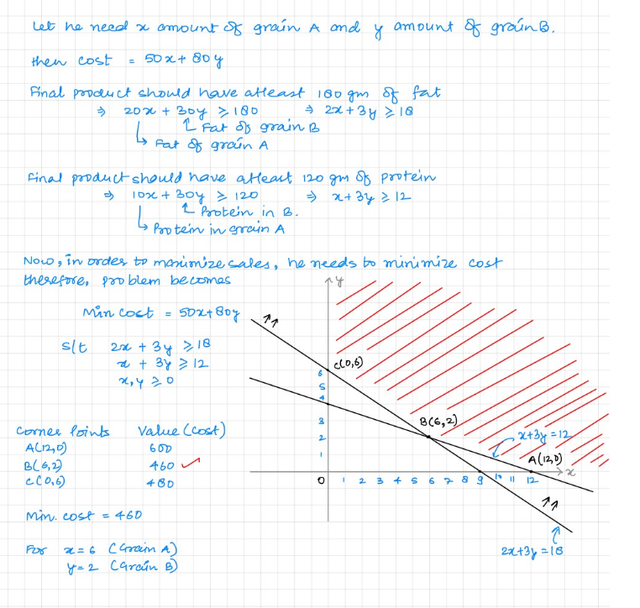 Let he need x amount of grain A and y amount of grain B.
then cost = 50x + 80y
Final product should have atleast 180 gm of fat
⇒ 20x + 30y ≥ 180 ⇒ 2x + 3y ≥ 18
Fat of grain B
Fat of grain A
Final product should have atleast 120 gm of protein
⇒ 10x + 30y ≥ 120 ⇒ x + 3y ≥ 12
Protein in B.
Protein in grain A
Now, in order to maximize sales, he needs to minimize cost
therefore, problem becomes
Min cost = 50x + 80y
s/t 2x + 3y ≥ 18
x + 3y ≥ 12
x, y ≥ 0
Corner Points Value (Cost)
A(12,0) 600
B(6,2) 460 ✓
C(0,6) 480
Min. cost = 460
For x = 6 (Grain A)
y = 2 (Grain B)
y
C(0,6)
6
5
4
3
2
1
B(6,2)
x+3y = 12
A(12,0)
x
0 1 2 3 4 5 6 7 8 9 10 11 12
2x+3y = 18